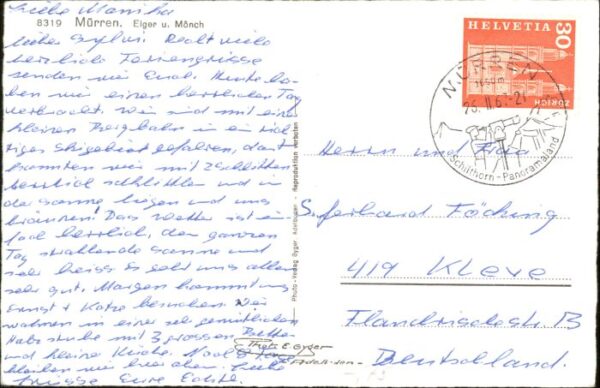 Liebe Monika
8319 Mürren. Eiger u. Mönch
lieber Sylvi. Recht viele
herzliche Feriengrüsse
senden wir Euch. Heute ha-
ben wir einen herrlichen Tag
verbracht. Wir sind mit einer
kleinen Bergbahn in ein rich-
tiges Skigebiet gefahren, dort
konnten wir mit 2 Schlitten
herrlich schlitteln und in
der Sonne liegen und uns
bräunen. Das Wetter ist ein-
fach herrlich, den ganzen
Tag strahlende Sonne und
sehr heiss. Es geht uns allen
sehr gut. Morgen kommt uns
Ernst + besuchen. Wir
wohnen in einer sehr gemütlichen
stube mit 3 grossen Betten
und kleine Küche. Noch
bleiben wir hier oben. Liebe
Grüsse Eure
Photo-Verlag Gyger Adelboden - Reproduktion verboten
Photo E. Gyger
Adelboden
HELVETIA
30
ZÜRICH
MÜRREN
1650 m
Schilthorn-Panoramaland
Herrn und Frau
4179 Kleve
Flandrischestr. 13
Deutschland.